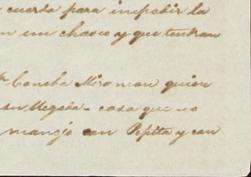 cuerda para impedir la
en un chasco y que tentran
Concha Miramon quien
san llegada - cosa que no
manejó con Pepita y con